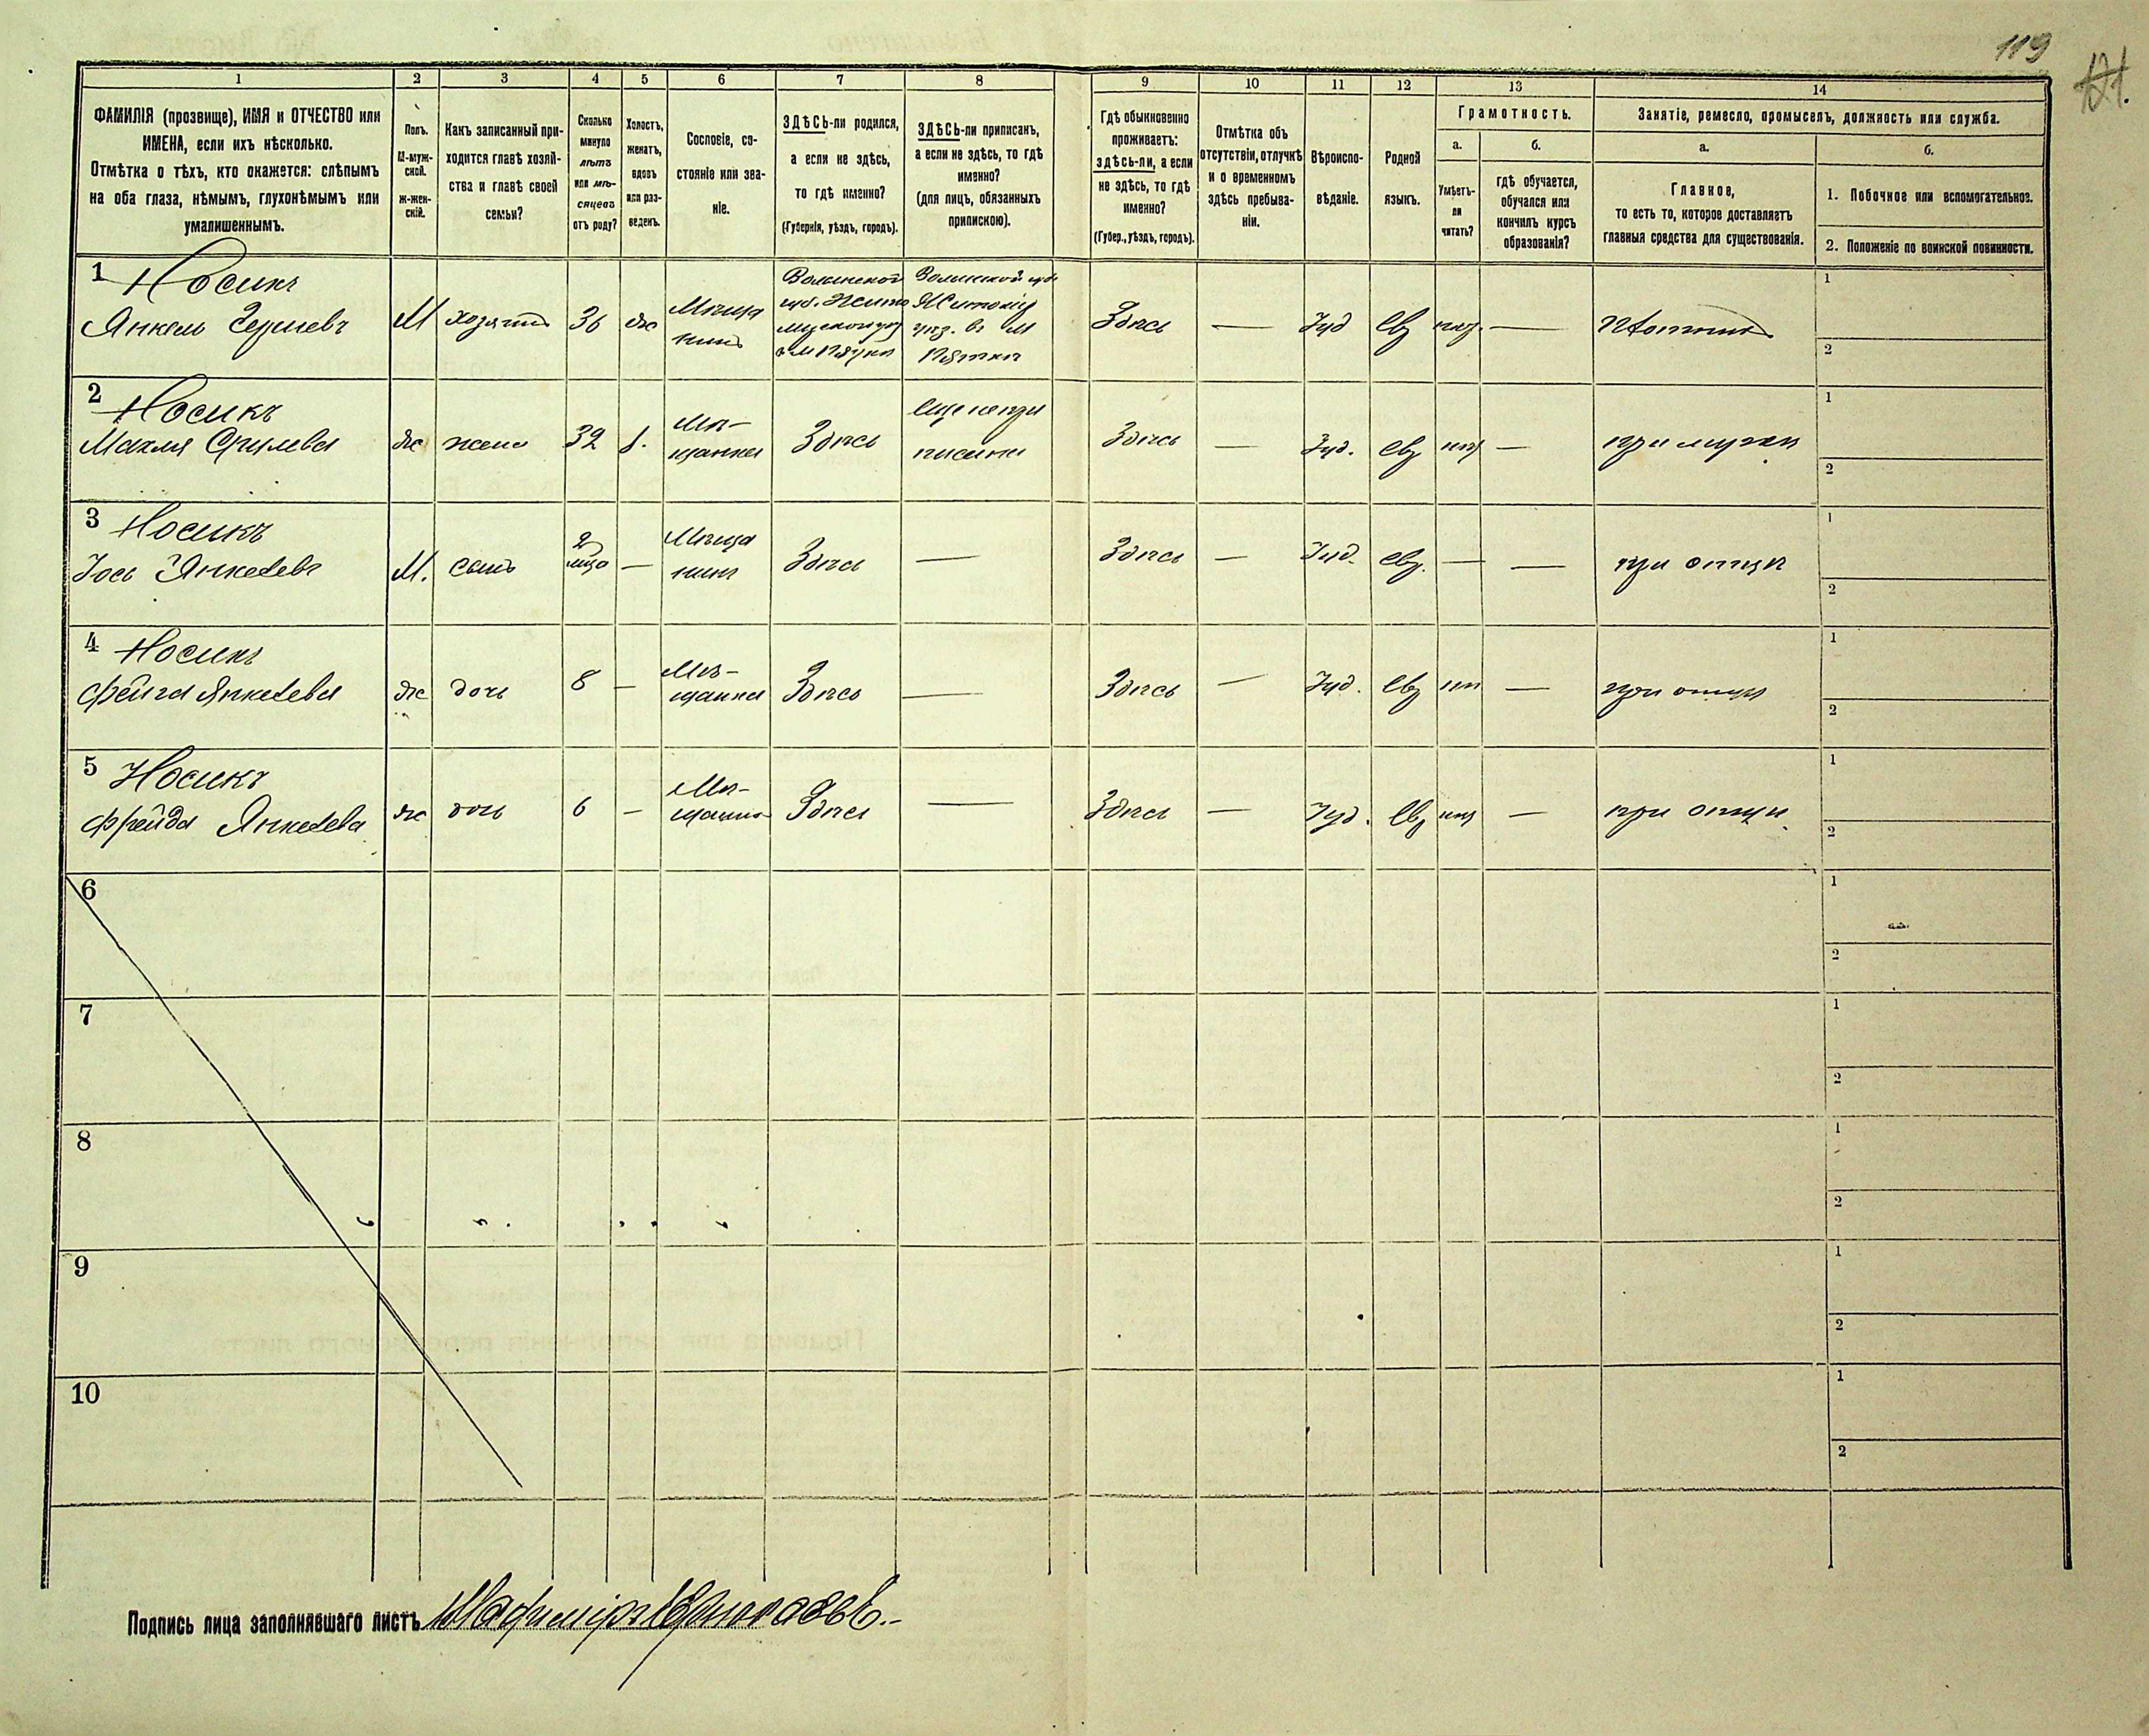 119
121.
1
2
3
4
5
6
7
8
9
10
11
12
13
14
ФАМИЛІЯ (прозвище), ИМЯ и ОТЧЕСТВО или
ИМЕНА, если ихъ нѣсколько.
Отмѣтка о тѣхъ, кто окажется: слѣпымъ
на оба глаза, нѣмымъ, глухонѣмымъ или
умалишеннымъ.
Полъ.
М-муж-
ской.
Ж-жен-
скій.
Какъ записанный при-
ходится главѣ хозяй-
ства и главѣ своей
семьи?
Сколько
минуло
лѣтъ
или мѣ-
сяцевъ
отъ роду?
Холостъ,
женатъ,
вдовъ
или раз-
веденъ.
Сословіе, со-
стояніе или зва-
ніе.
ЗДѢСЬ-ли родился,
а если не здѣсь,
то гдѣ именно?
(Губернія, уѣздъ, городъ).
ЗДѢСЬ-ли приписанъ,
а если не здѣсь, то гдѣ
именно?
(для лицъ, обязанныхъ
припискою).
Гдѣ обыкновенно
проживаетъ:
здѣсь-ли, а если
не здѣсь, то гдѣ
именно?
(Губер., уѣздъ, городъ).
Отмѣтка объ
отсутствіи, отлучкѣ
и о временномъ
здѣсь пребыва-
ніи.
Вѣроиспо-
вѣданіе.
Родной
языкъ.
Грамотность.
а.
Умѣетъ-
ли
читать?
б.
гдѣ обучается,
обучался или
кончилъ курсъ
образованія?
Занятіе, ремесло, промыселъ, должность или служба.
а.
Главное,
то есть то, которое доставляетъ
главныя средства для существованія.
б.
1. Побочное или вспомогательное.
2. Положеніе по воинской повинности.
1 Носикъ
Янкель Гершевъ
М
хозяинъ
36
ж
Мѣща
нинъ
Волынской
губ. Жито
мирскаго у
Волынской губ
Житомір
уѣз. в М
Пятки
Здѣсь
—
Іуд
Евр
—
Плотникъ
1
2
2 Носикъ
Махля Срулева
ж
жена
32
Мѣ-
щанка
Здѣсь
еще не при
писана
Здѣсь
—
Іуд.
Евр
—
при мужѣ
1
2
3 Носикъ
Іось Янкелевъ
М.
сынъ
2
мѣс
—
Мѣща
нинъ
Здѣсь
—
Здѣсь
—
Іуд.
Евр.
—
—
при отцѣ
1
2
4 Носикъ
Фейга Янкелева
ж
дочь
8
—
Мѣ-
щанка
Здѣсь
—
Здѣсь
—
Іуд.
Евр
—
при отцѣ
1
2
5 Носикъ
Фрейда Янкелева
ж
дочь
6
—
Мѣ-
щанка
Здѣсь
—
Здѣсь
—
Іуд.
Евр
—
при отцѣ
1
2
6
1
2
7
1
2
8
1
2
9
1
2
10
1
2
Подпись лица заполнявшаго листъ